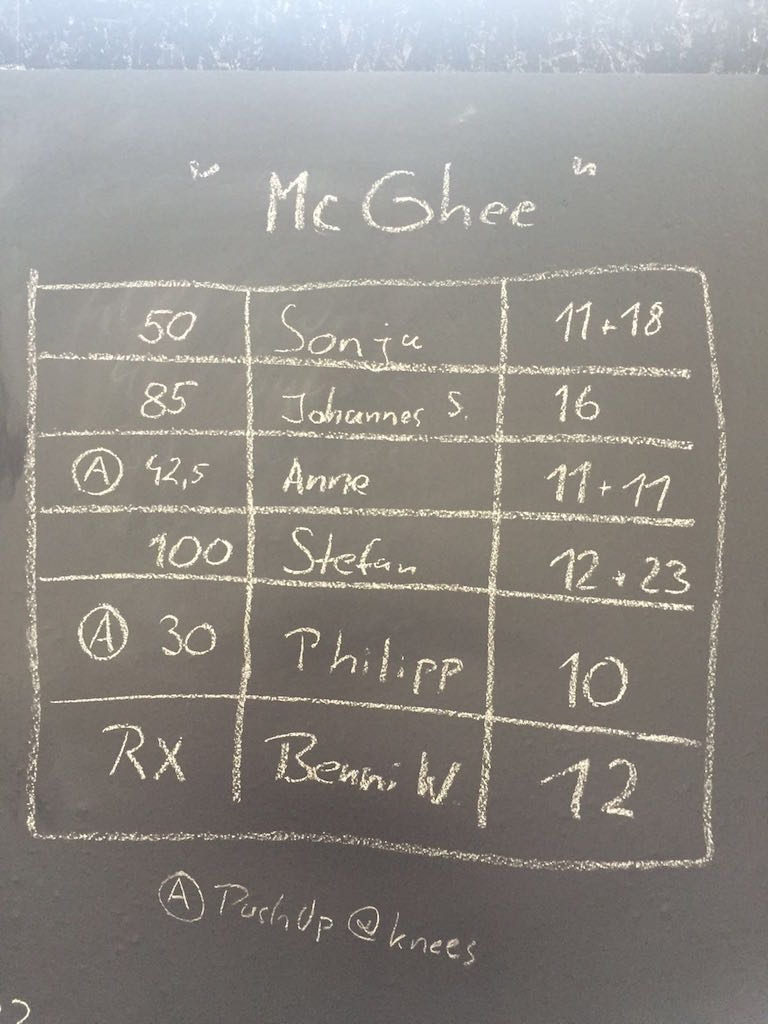 " Mc Ghee "
50 Sonja 11+18
85 Johannes S. 16
Ⓐ 42,5 Anne 11+11
100 Stefan 12+23
Ⓐ 30 Philipp 10
RX Benni W. 12
Ⓐ PushUp @ knees